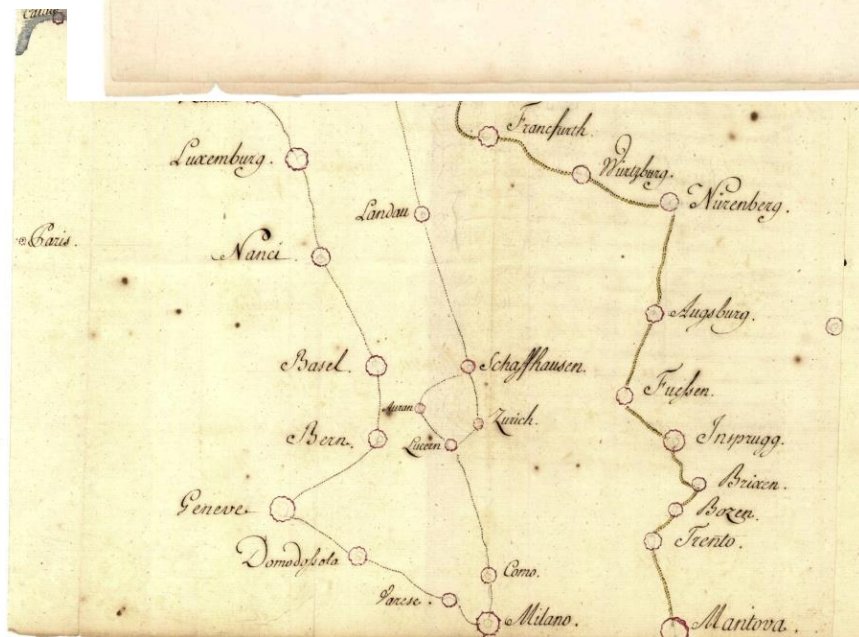 Francfurth.
Luxemburg.
Würtzburg.
Nürenberg.
Landau
Paris.
Nanci
Augsburg.
Basel.
Schaffhausen.
Fuessen.
Aurau
Zurich.
Bern.
Lucern
Insprugg.
Brixen.
Geneve.
Bozen.
Trento.
Domodossola
Como.
Varese.
Milano.
Mantova.